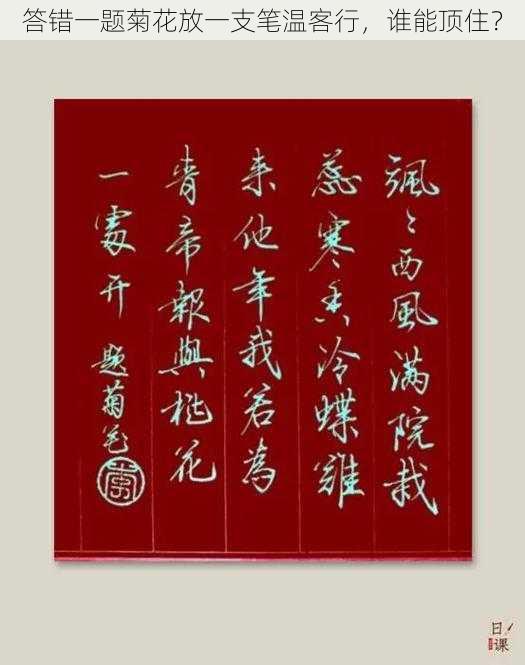 答错一题菊花放一支笔温客行，谁能顶住？
飒〻西風满院栽
蕊寒香冷蝶難
来他年我若為
青帝報與桃花
一處开 题菊花
日課